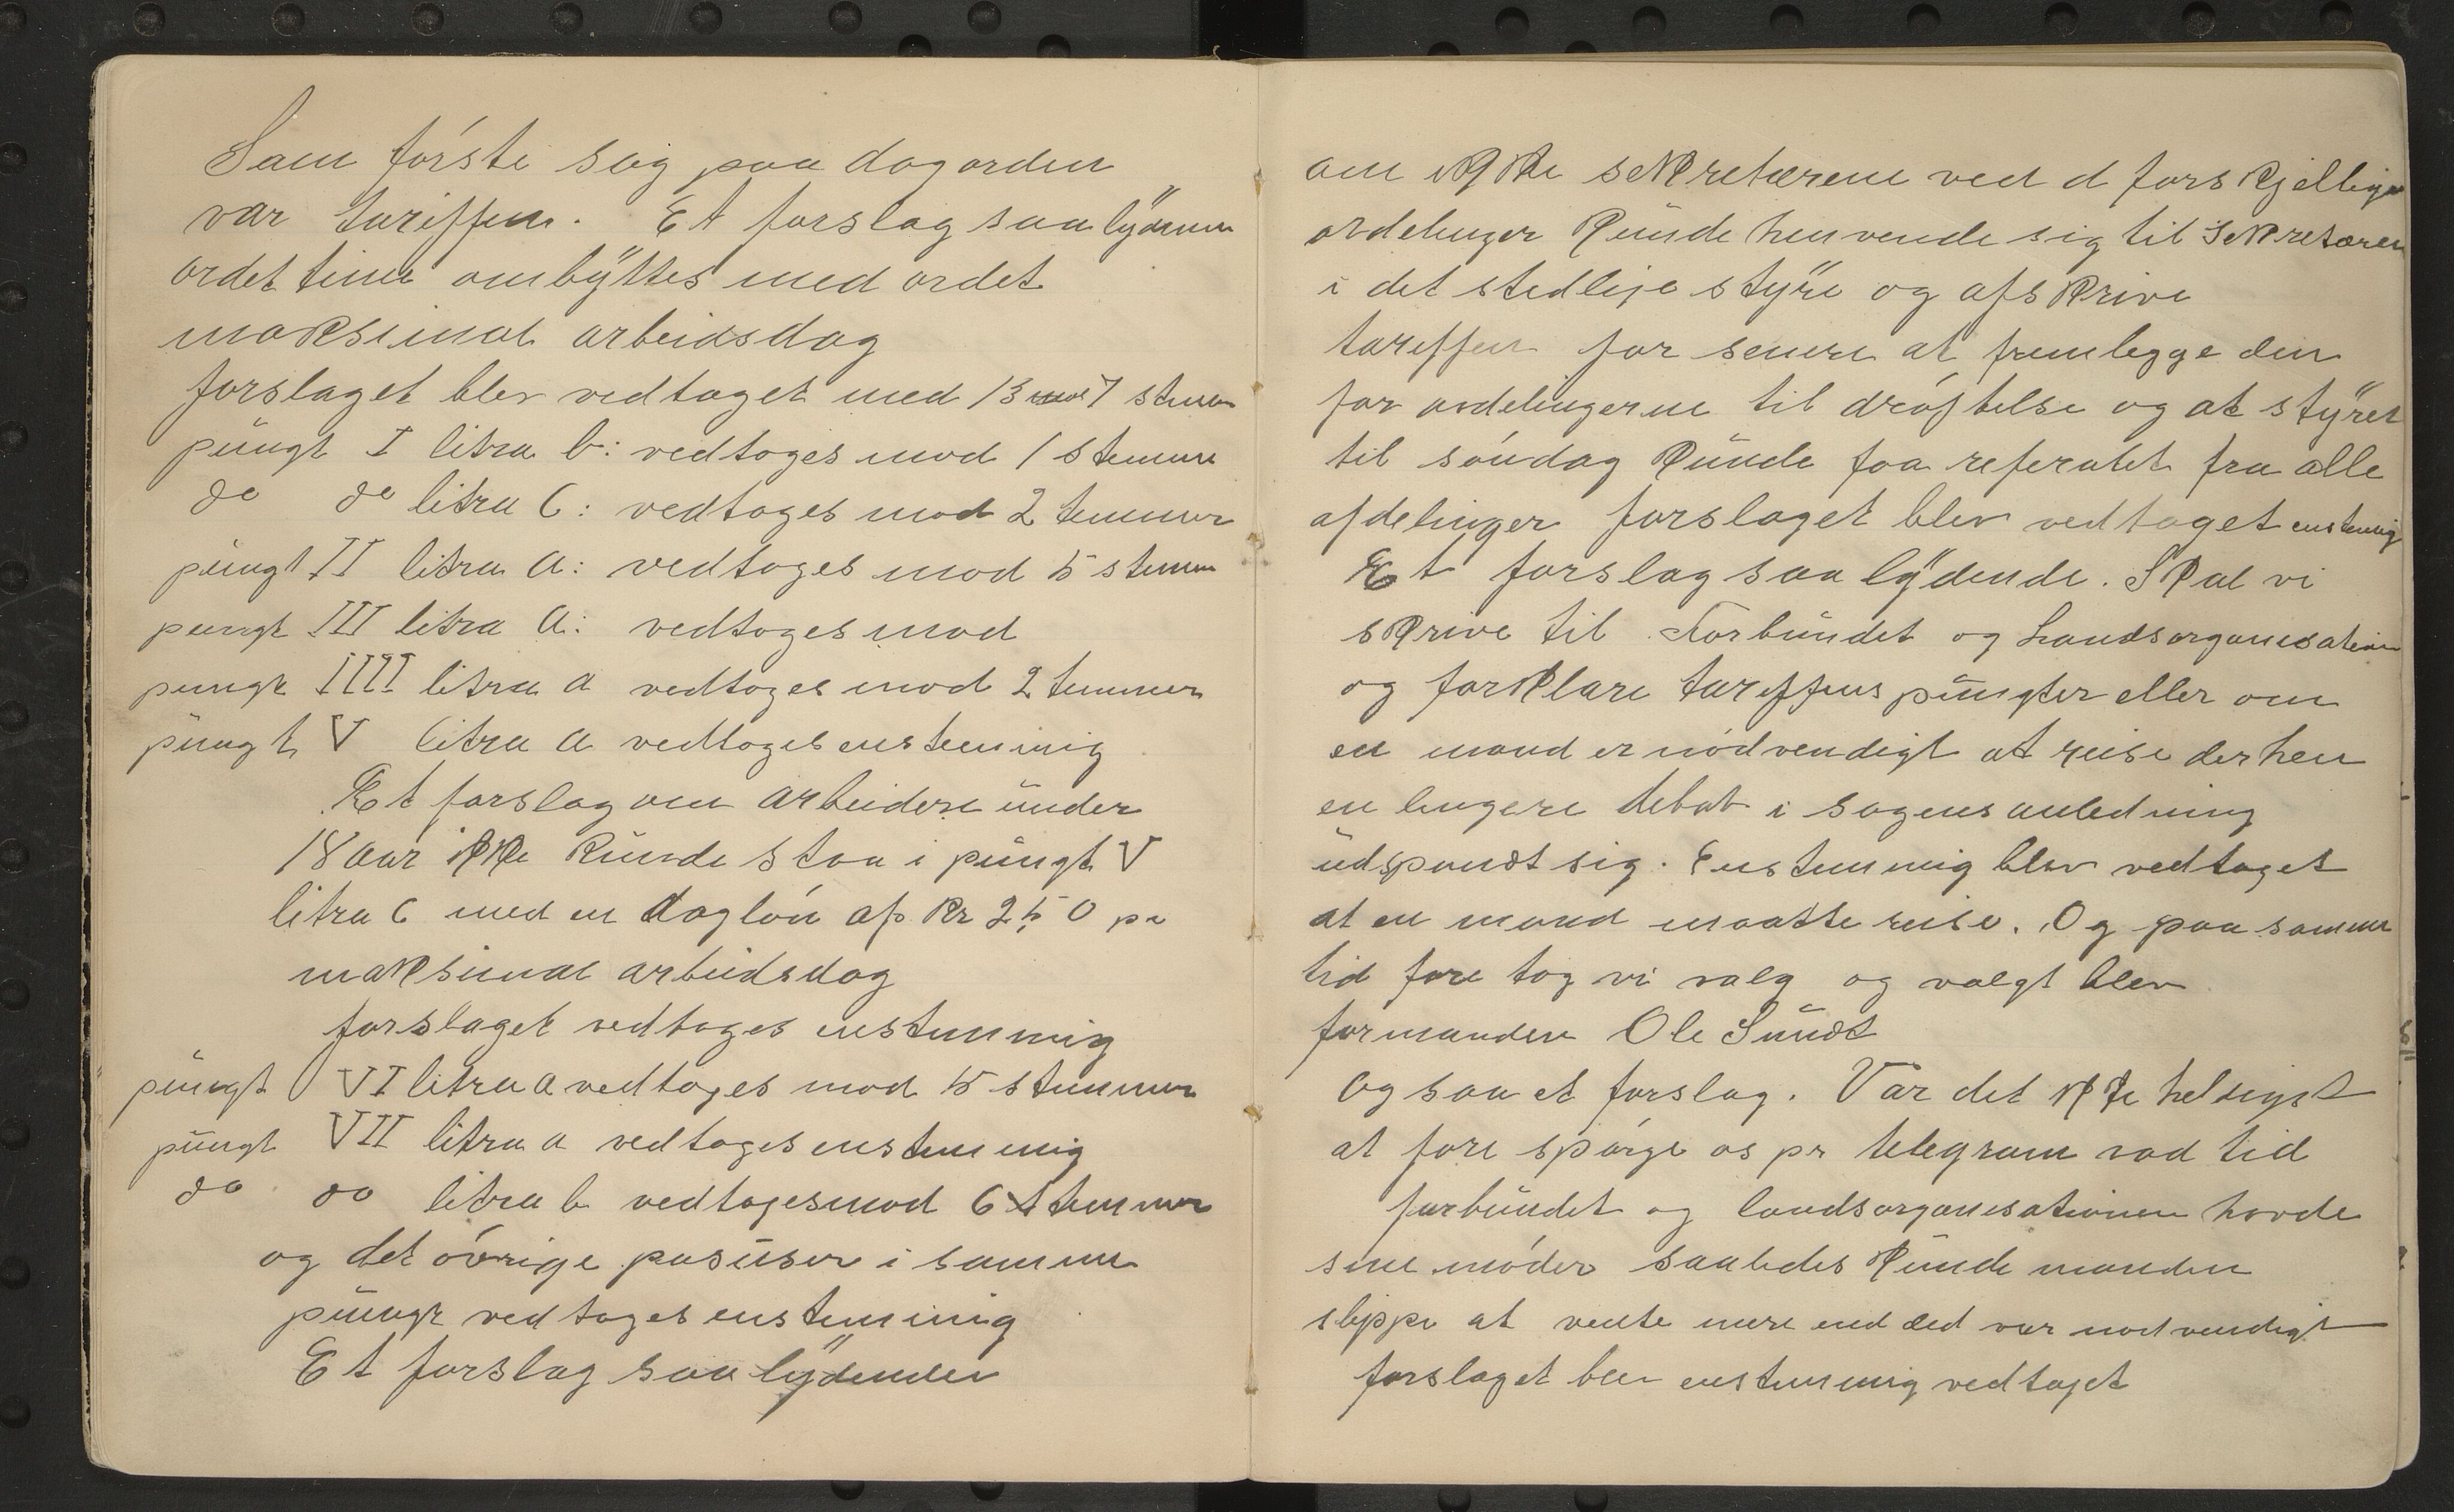 Som første sag paa dagorden
var tariffen. Et forslag saalydenne
ordet time ombyttes med ordet
maksimal arbeidsdag
forslaget blev vedtaget med 13 mot 7 stemm
pungt I litra b: vedtoges mod 1 stemme
do do litra C: vedtoges mod 2 temmer
pungt II litra a: vedtoges mod 5 stemm
pungt III litra a: vedtoges mod
pungt IIII litra a vedtoges mod 2 temmer
pungt V litra a vedtoges enstemmig
Et forslag om arbeidere under
18 aar ikke kunde staa i pungt V
litra C med en dagløn af kr 2,50 pr
maksimal arbeidsdag
forslaget vedtoges enstemmig
pungt VI litra a vedtoges mod 5 stemmer
pungt VII litra a vedtoges enstemmig
do do litra b vedtoges mod 6 stemmer
og det øvrige posuser i samme
pungt vedtoges enstemmig
Et forslag saa lydender
om ikke sekretærene ved d forskjellige
avdelinger kunde henvende sig til Sekretæren
i det stedlige styre og afskrive
tariffen for senere at fremlegge den
for avdelingerne til drøftelse og at styret
til søndag kunde faa referatet fra alle
afdelinger forslaget blev vedtaget enstemig
Et forslag saa lydende. Skal vi
skrive til Forbundet og Landsorganisation
og forklare tariffens pungter eller om
en mand er nødvendigt at reise derhen
en lengere debat i sagens anledning
udspandt sig. Enstemmig blev vedtaget
at en mand maatte reise. Og paa samme
tid fore tog vi valg og valgt blev
formanden Ole Sundt
Og saa et forslag. Var det ikke heldigst
at fore spørge os pr telegram vad tid
forbundet og landsorganisationen havde
sine møder saaledes kunde manden
slippe at vente mere end ded var nødvendigt
forslaget blev enstemmig vedtaget